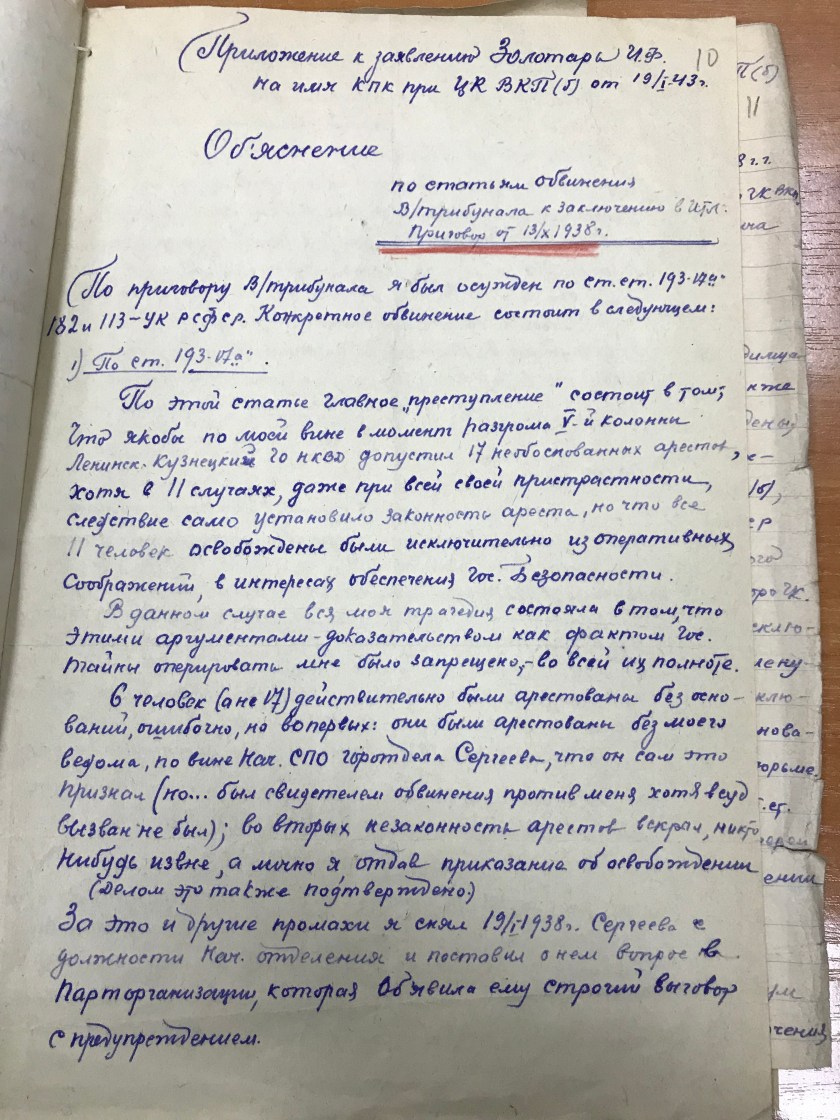 (Приложение к заявлению Золотарь И.Ф. 10
на имя КПК при ЦК ВКП(б) от 19/I-43г.
Об'яснение
по статьям обвинения
В/трибунала к заключению в ИТЛ.
Приговор от 13/X 1938г.
(По приговору В/трибунала я был осужден по ст.ст. 193-17"а"
182 и 113-УК РСФСР. Конкретное обвинение состоит в следующем:
1) По ст. 193-17"а".
По этой статье главное "преступление" состоит в том,
что якобы по моей вине в момент разгрома V-й колонны
Ленинск-Кузнецкий ГО НКВД допустил 17 необоснованных арестов,
хотя в 11 случаях, даже при всей своей пристрастности,
следствие само установило законность ареста, но что все
11 человек освобождены были исключительно из оперативных
соображений, в интересах обеспечения Гос. Безопасности.
В данном случае вся моя трагедия состояла в том, что
этими аргументами-доказательством как фактом Гос.
тайны оперировать мне было запрещено,-во всей их полноте.
6 человек (а не 17) действительно были арестованы без осно-
ваний, ошибочно, но вопервых: они были арестованы без моего
ведома, по вине Нач. СПО горотдела Сергеева, что он сам это
признал (но... был свидетелем обвинения против меня хотя в суд
вызван не был); во вторых незаконность арестов вскрыл, никто
нибудь извне, а лично я, отдав приказание об освобождении
(Делом это также подтверждено.)
За это и другие промахи я снял 19/I-1938г. Сергеева с
должности Нач. отделения и поставил о нем вопрос на
Парторганизации, которая Об'явила ему строгий выговор
с предупреждением.
П(б)
11
8 г.г.
ЦК ВКП